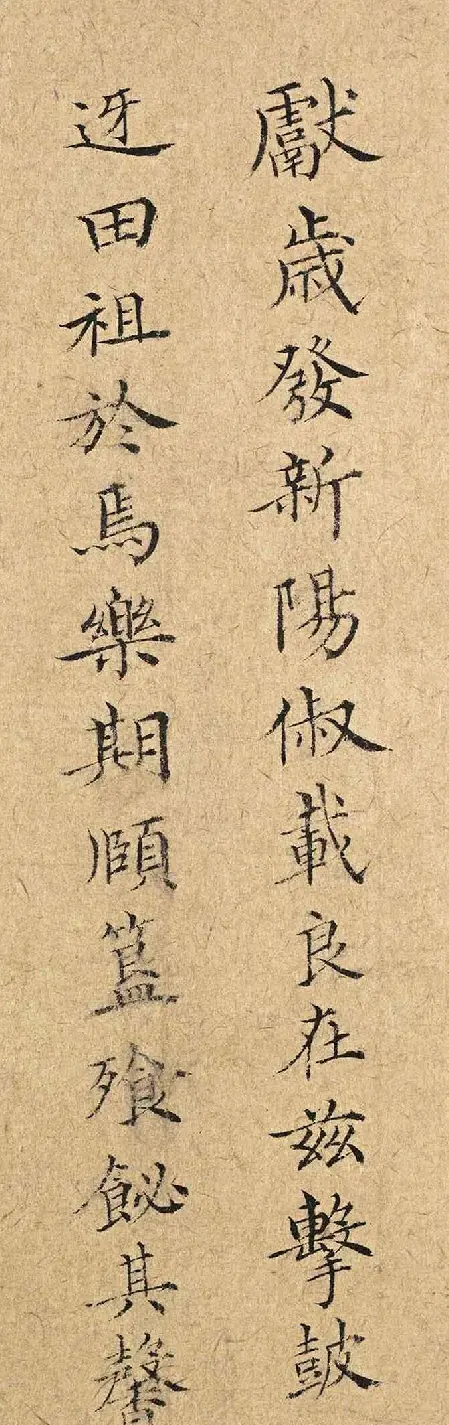 獻歲發新陽俶載良在兹擊鼓
迓田祖於焉樂期頤簋飱飶其馨